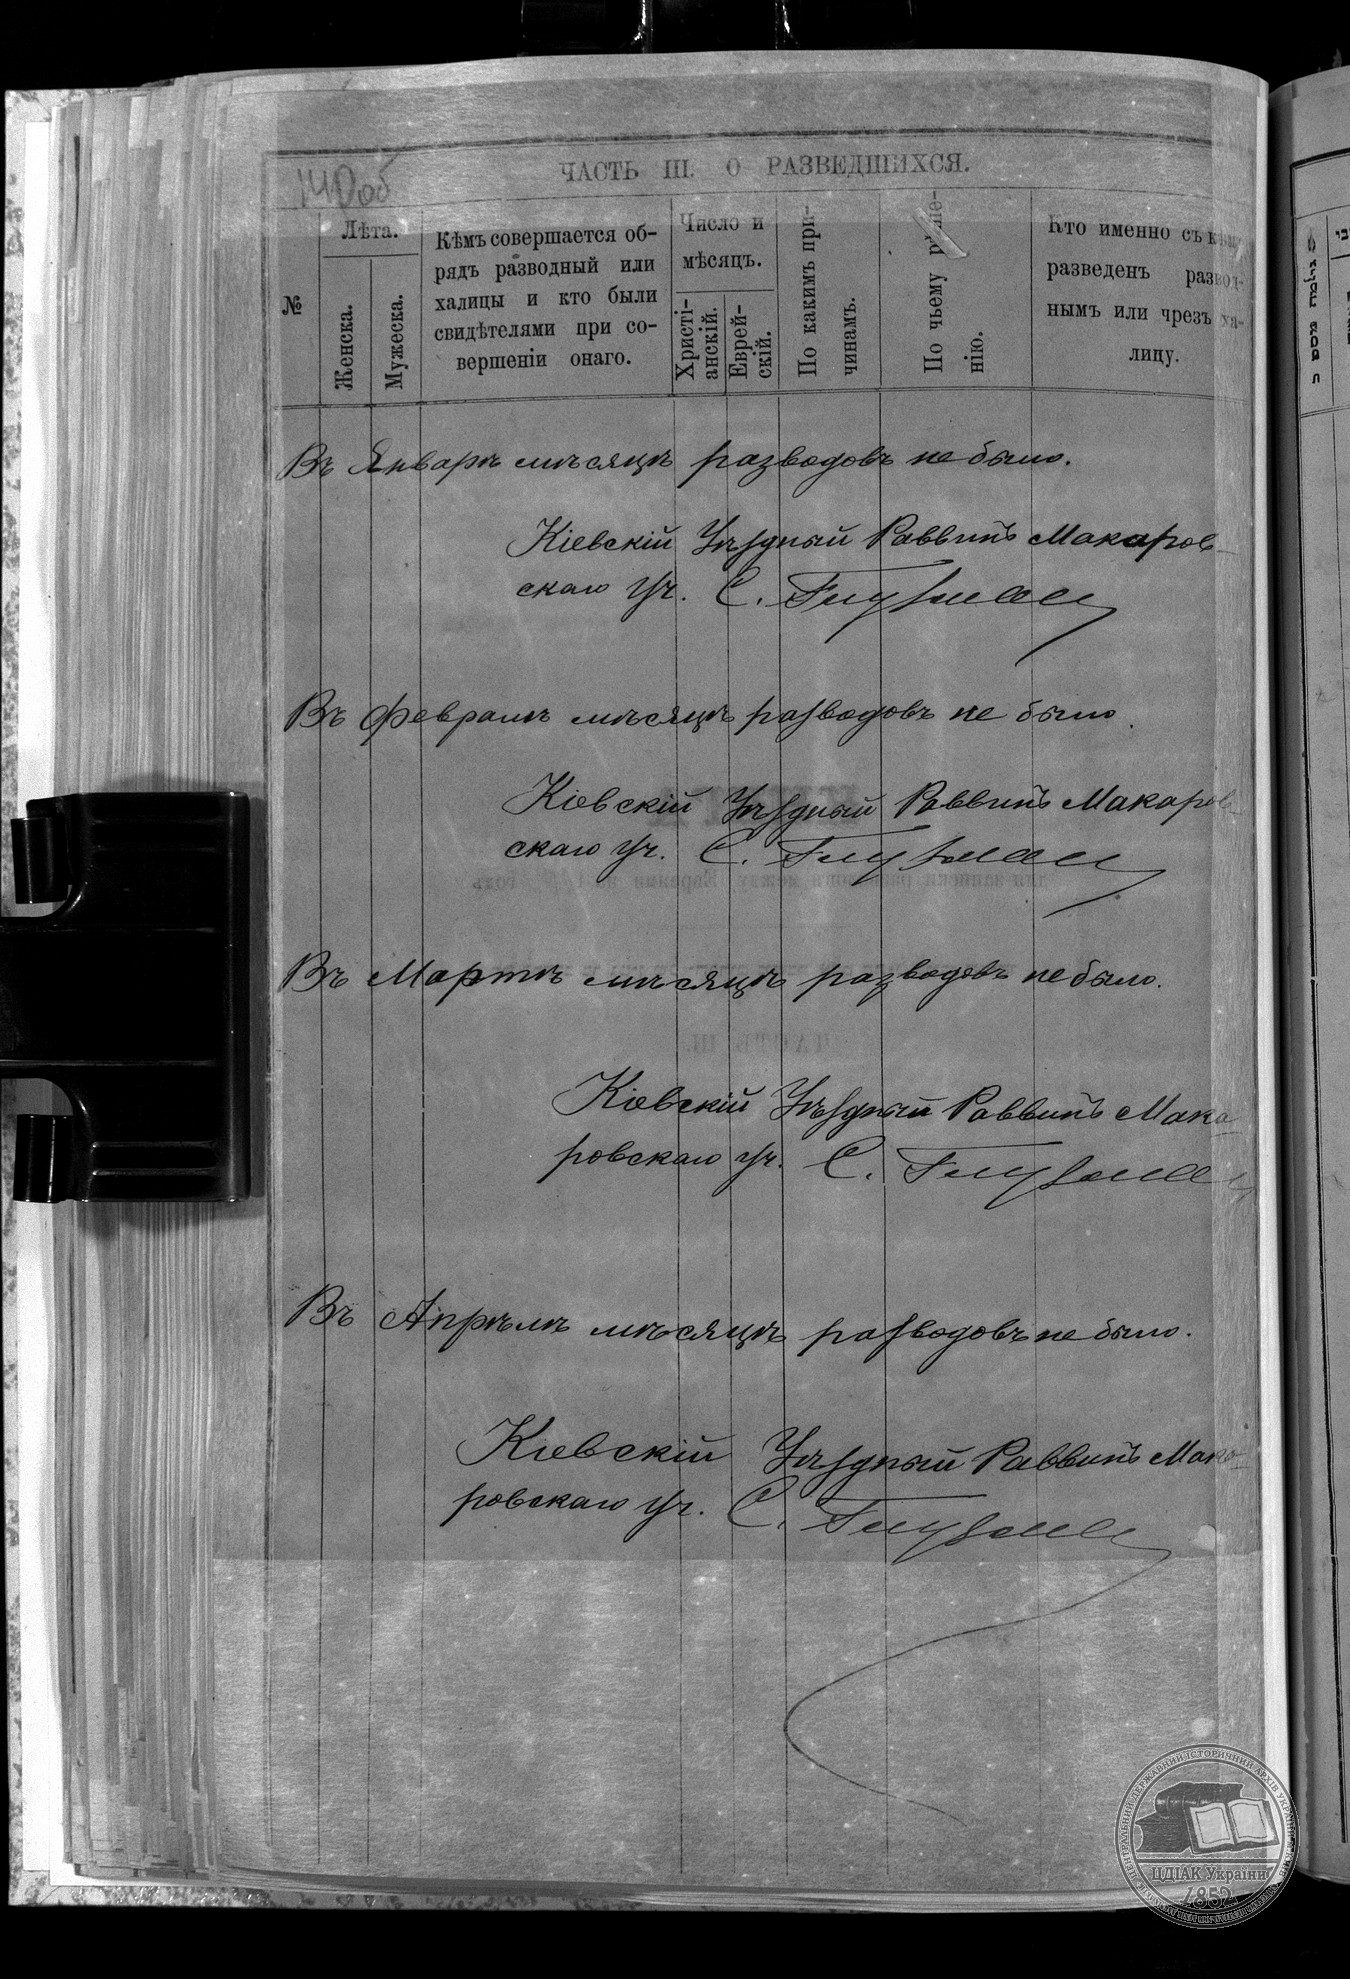 140об
ЧАСТЬ III. О РАЗВЕДШИХСЯ.
№
Лѣта.
Женска.
Мужеска.
Кѣмъ совершается об-
рядъ разводный или
халицы и кто были
свидѣтелями при со-
вершеніи онаго.
Число и
мѣсяцъ.
Христі-
анскій.
Еврей-
скій.
По какимъ при-
чинамъ.
По чьему рѣше-
нію.
Кто именно съ кѣмъ
разведенъ развод-
нымъ или чрезъ ха-
лицу.
Въ Январѣ мѣсяцѣ разводовъ не было.
Кіевскій Уѣздный Раввинъ Макаров-
скаго уч. С.
Въ Февралѣ мѣсяцѣ разводовъ не было.
Кіевскій Уѣздный Раввинъ Макаров-
скаго уч. С.
Въ Мартѣ мѣсяцѣ разводовъ не было.
Кіевскій Уѣздный Раввинъ Мака-
ровскаго уч. С.
Въ Апрѣлѣ мѣсяцѣ разводовъ не было.
Кіевскій Уѣздный Раввинъ Мака-
ровскаго уч. С.
ЦЕНТРАЛЬНИЙ ДЕРЖАВНИЙ ІСТОРИЧНИЙ АРХІВ УКРАЇНИ
ЦДІАК України
1852